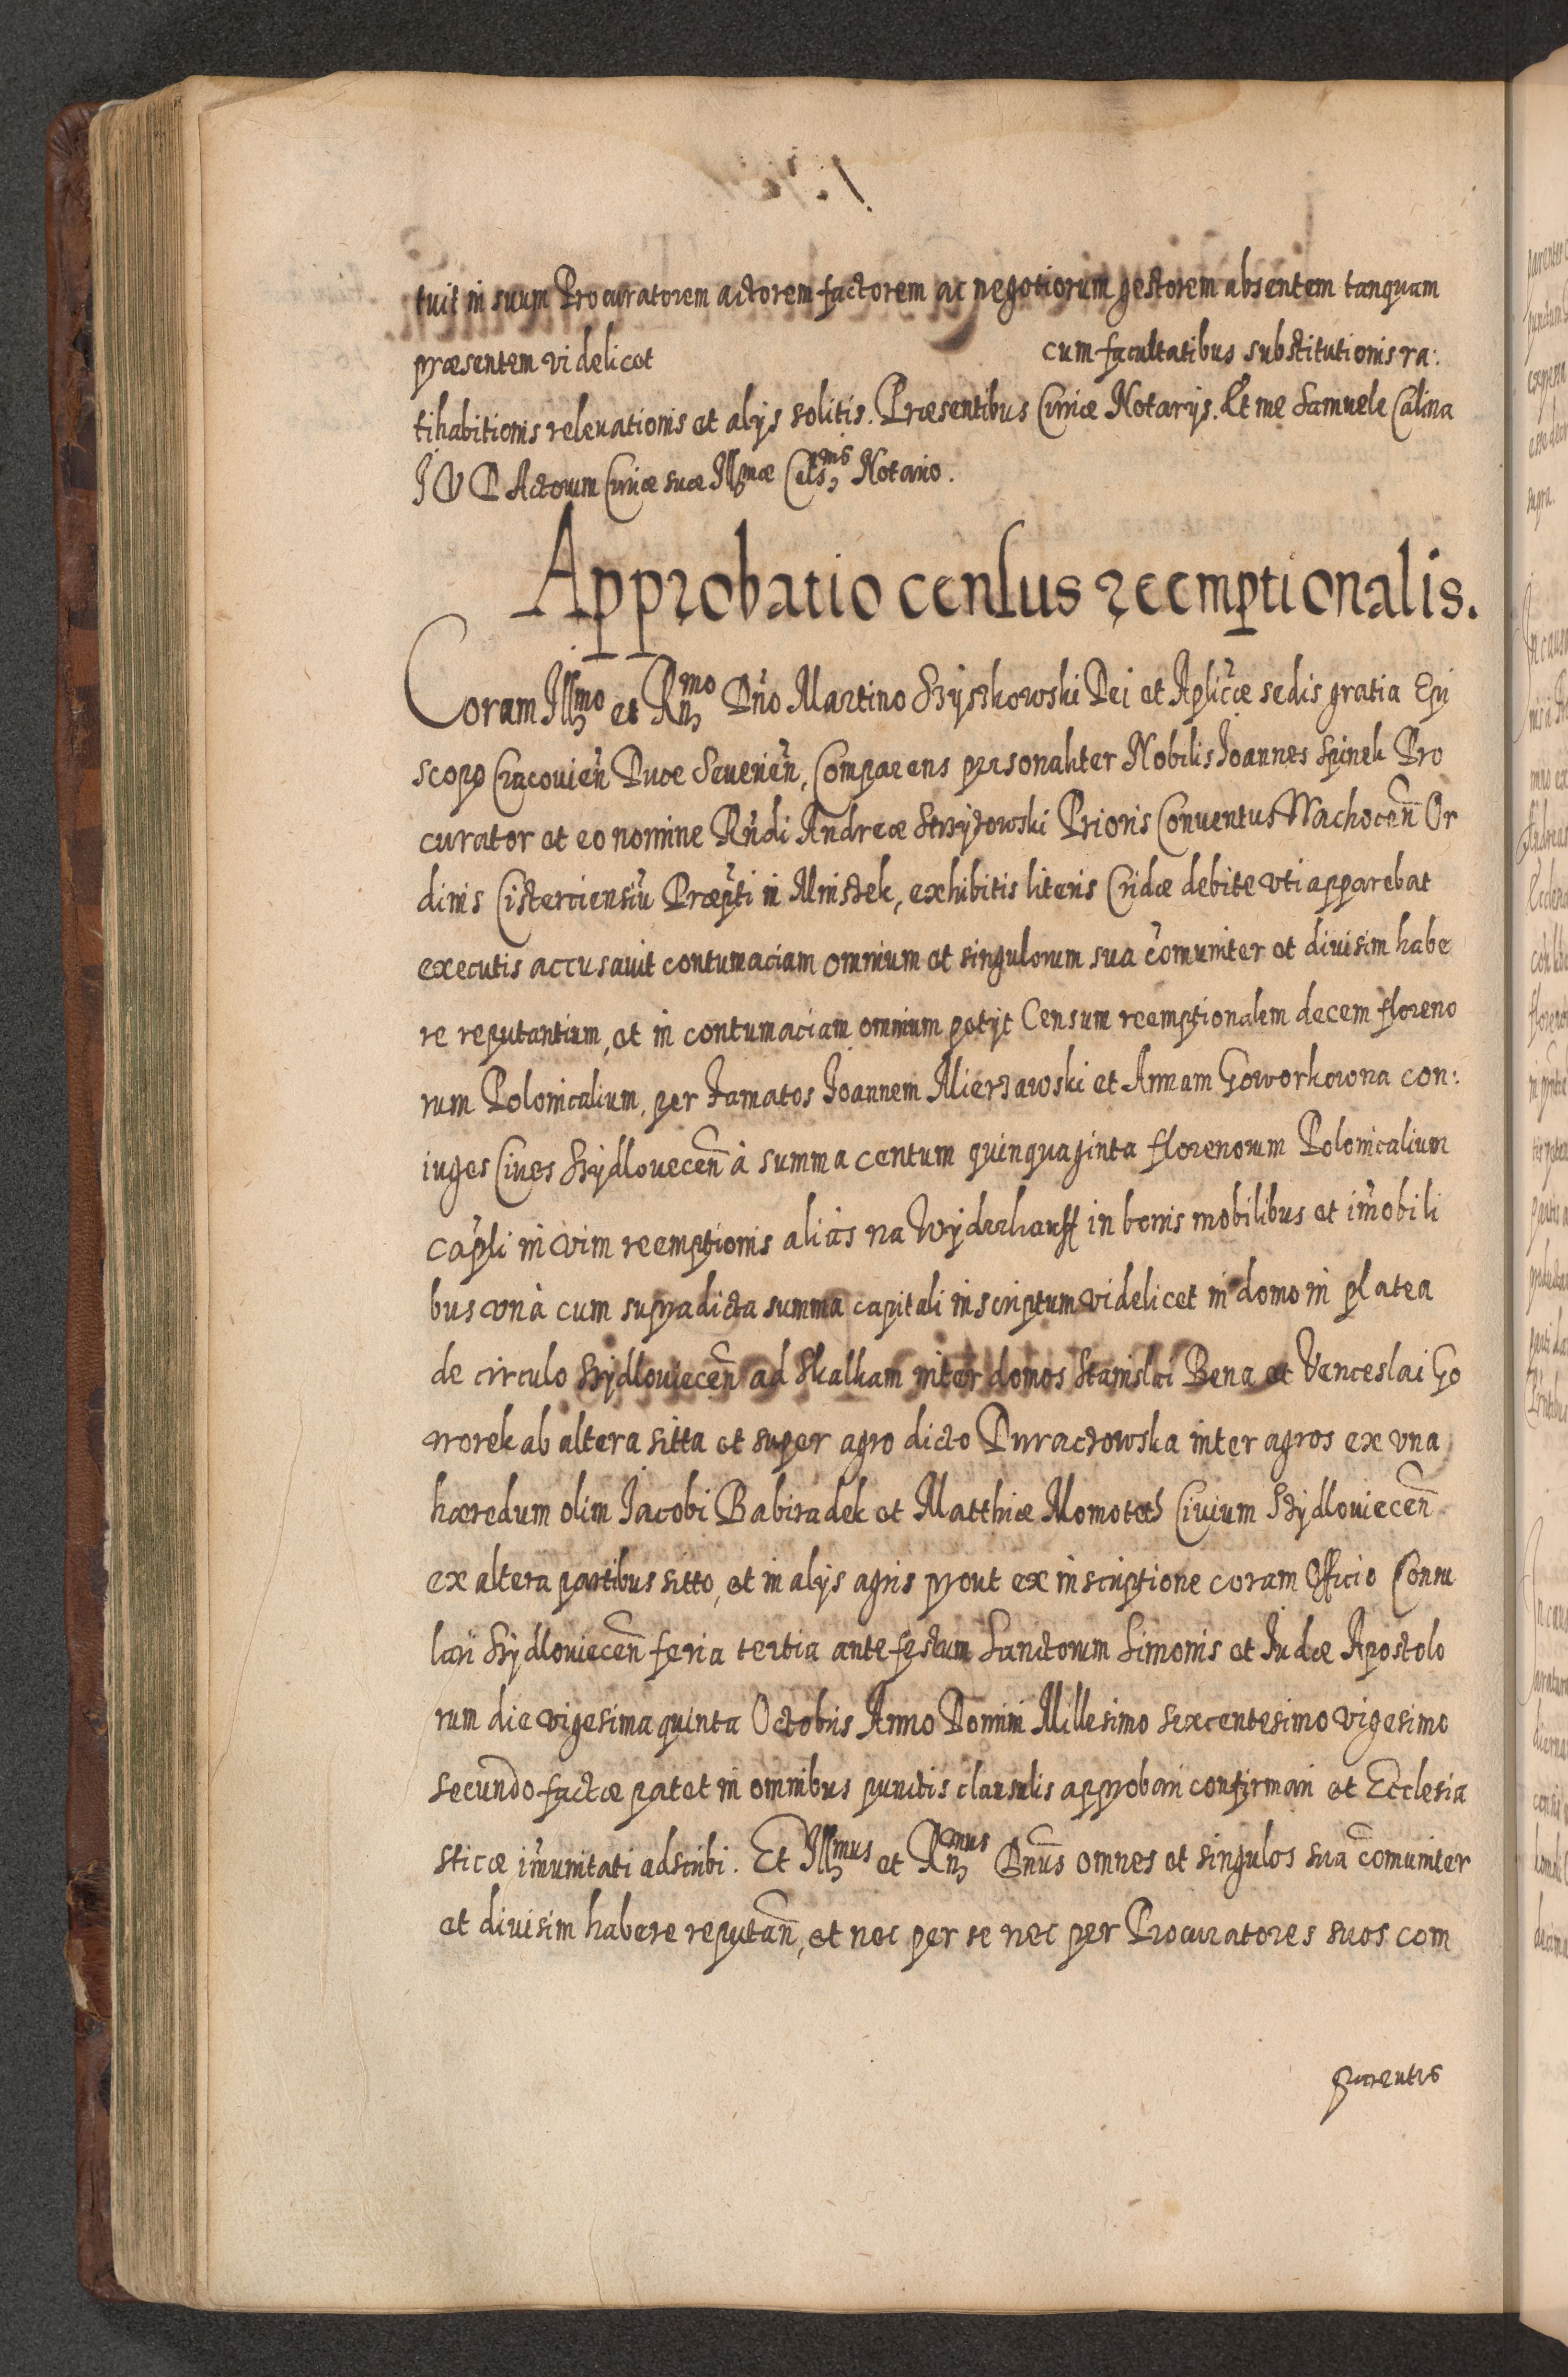 tuit in suum Procuratorem actorem factorem ac negotiorum gestorem absentem tanquam
præsentem videlicet cum facultatibus substitutionis ra:
tihabitionis releuationis et alijs solitis. Præsentibus Curiæ Notarijs. Et me Samuele Calina
I V D Actorum Curiæ suæ Illmæ Celsnis Notario.
Approbatio census reemptionalis.
Coram Illmo et Rnmo Dño Martino Szyszkowski Dei et Aplicæ sedis gratia Epi
scopo Cracouieñ Duce Seuerieñ, Comparens personaliter Nobilis Ioannes Spinek Pro
curator et eo nomine Rñdi Andreæ Strzyżowski Prioris Conuentus Wachoceñ Or
dinis Cisterciensiũ Præpti in Mnistek, exhibitis literis Cridæ debite vti apparebat
executis accusauit contumaciam omnium et singulorum sua comuniter et diuisim habe
re reputantium, et in contumaciam omnium petijt Censum reemptionalem decem floreno
rum Polonicalium, per famatos Ioannem Mierzawski et Annam Goworkowna con:
iuges Ciues Szydloueceñ à summa centum quinquaginta florenorum Polonicalium
capli in vim reemptionis aliàs na Wyderkauff in bonis mobilibus et imobili
bus vnà cum supradicta summa capitali inscriptum videlicet in domo in platea
de circulo Szydlouieceñ ad Skalkam inter domos Stanislai Bena et Venceslai Go
worek ab altera sitta et super agro dicto Duraczowska inter agros ex vna
hæredum olim Iacobi Babiradek et Matthiæ Momotek Ciuium Szydlouieceñ
ex altera partibus sitto, et in alijs agris prout ex inscriptione coram Officio Consu
lari Szydlouieceñ feria tertia ante festum Sanctorum Simonis et Iudæ Apostolo
rum die vigesima quinta Octobris Anno Domini Millesimo sexcentesimo vigesimo
secundo factæ patet in omnibus punctis clausulis approbari confirmari et Ecclesia
sticæ imunitati adscribi. Et Illmus et Rnmus Dnus omnes et singulos sua comuniter
et diuisim habere reputañ, et nec per se nec per Procuratores suos com
parentes